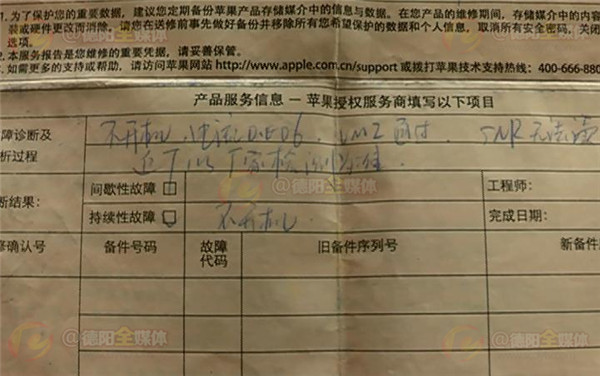 1.为了保护您的重要数据，建议您定期备份苹果产品存储媒介中的信息与数据。在您产品的维修期间，存储媒介中的内容
装或硬件更改而消除。请您在送修前事先做好备份并移除所有您希望保护的数据和个人信息，取消所有安全密码，关闭
选项。
2.本服务报告是您维修的重要凭据，请妥善保管。
如需更多的支持或帮助，请访问苹果网站http://www.apple.com.cn/support 或拨打苹果技术支持热线：400-666-880
产品服务信息 － 苹果授权服务商填写以下项目
障诊断及
析过程
不开机
通过
SNR 无法读
以厂家检测为准.
断结果：
间歇性故障
持续性故障
不开机
工程师：
完成日期：
修确认号
备件号码
故障
代码
旧备件序列号
新备件
@德阳全媒体
@德阳全媒体
@德阳全媒体
@德阳全媒体